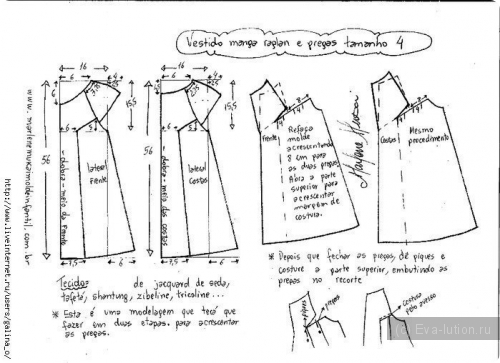 Vestido manga raglan e pregas tamanho 4
16
6
4
2,5
15,5
6
5
56
dobra - meio da frente
lateral
Frente
7,5
6
16
6
4
2,5
15,5
6
5
56
dobra - meio das costas
lateral
Costas
7,5
6
4
4
Frente
Refaça
molde
acrescentando
8 cm para
as duas pregas.
Abra a parte
superior para
acrescentar
margem de
costura.
4
4
Costas
Mesmo
procedimento
Tecidos de jacquard de seda,
tafetá, shantung, zibeline, tricoline...
* Esta é uma modelagem que terá que
fazer em duas etapas. para acrescentar
as pregas.
* Depois que fechar as pregas, dê piques e
costure a parte superior, embutindo as
pregas no recorte
pregas
costura
pelo avesso
http://www.liveinternet.ru/users/galina_o/
(c) Eva-lution.ru